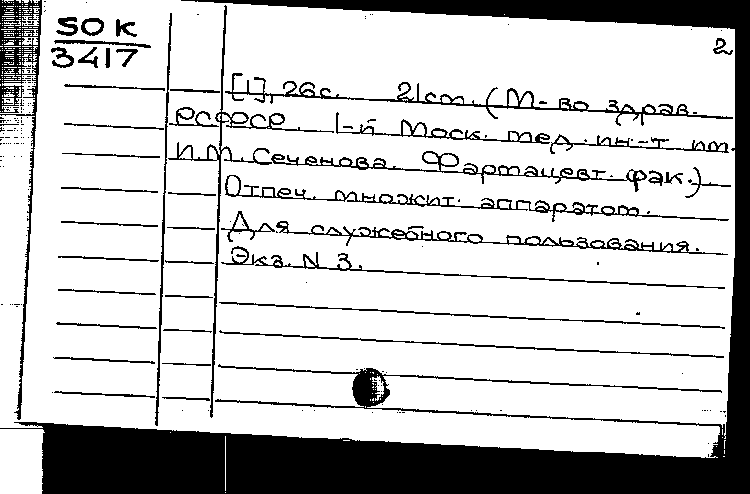 SOK
3417
2
[1], 26с. 21cm. (М-во здрав.
РСФСР. 1-й Моск. мед. ин-т им.
И.М. Сеченова. Фармацевт. фак.)
Отпеч. множит. аппаратом.
Для служебного пользования.
Экз. N 3.